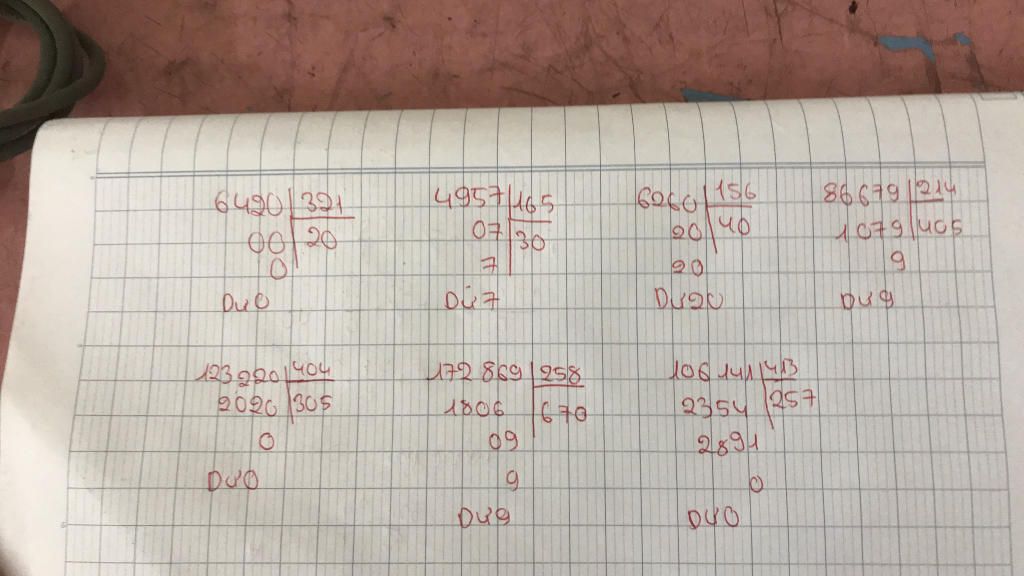 6420 321 4957 165 6260 156 86679 214
00 20 07 30 20 40 1079 405
0 7 20 9
Dư 0 Dư 7 Dư 20 Dư 9
123220 404 172869 258 106141 413
2020 305 1806 670 2354 257
0 09 2891
Dư 0 9 0
Dư 9 Dư 0